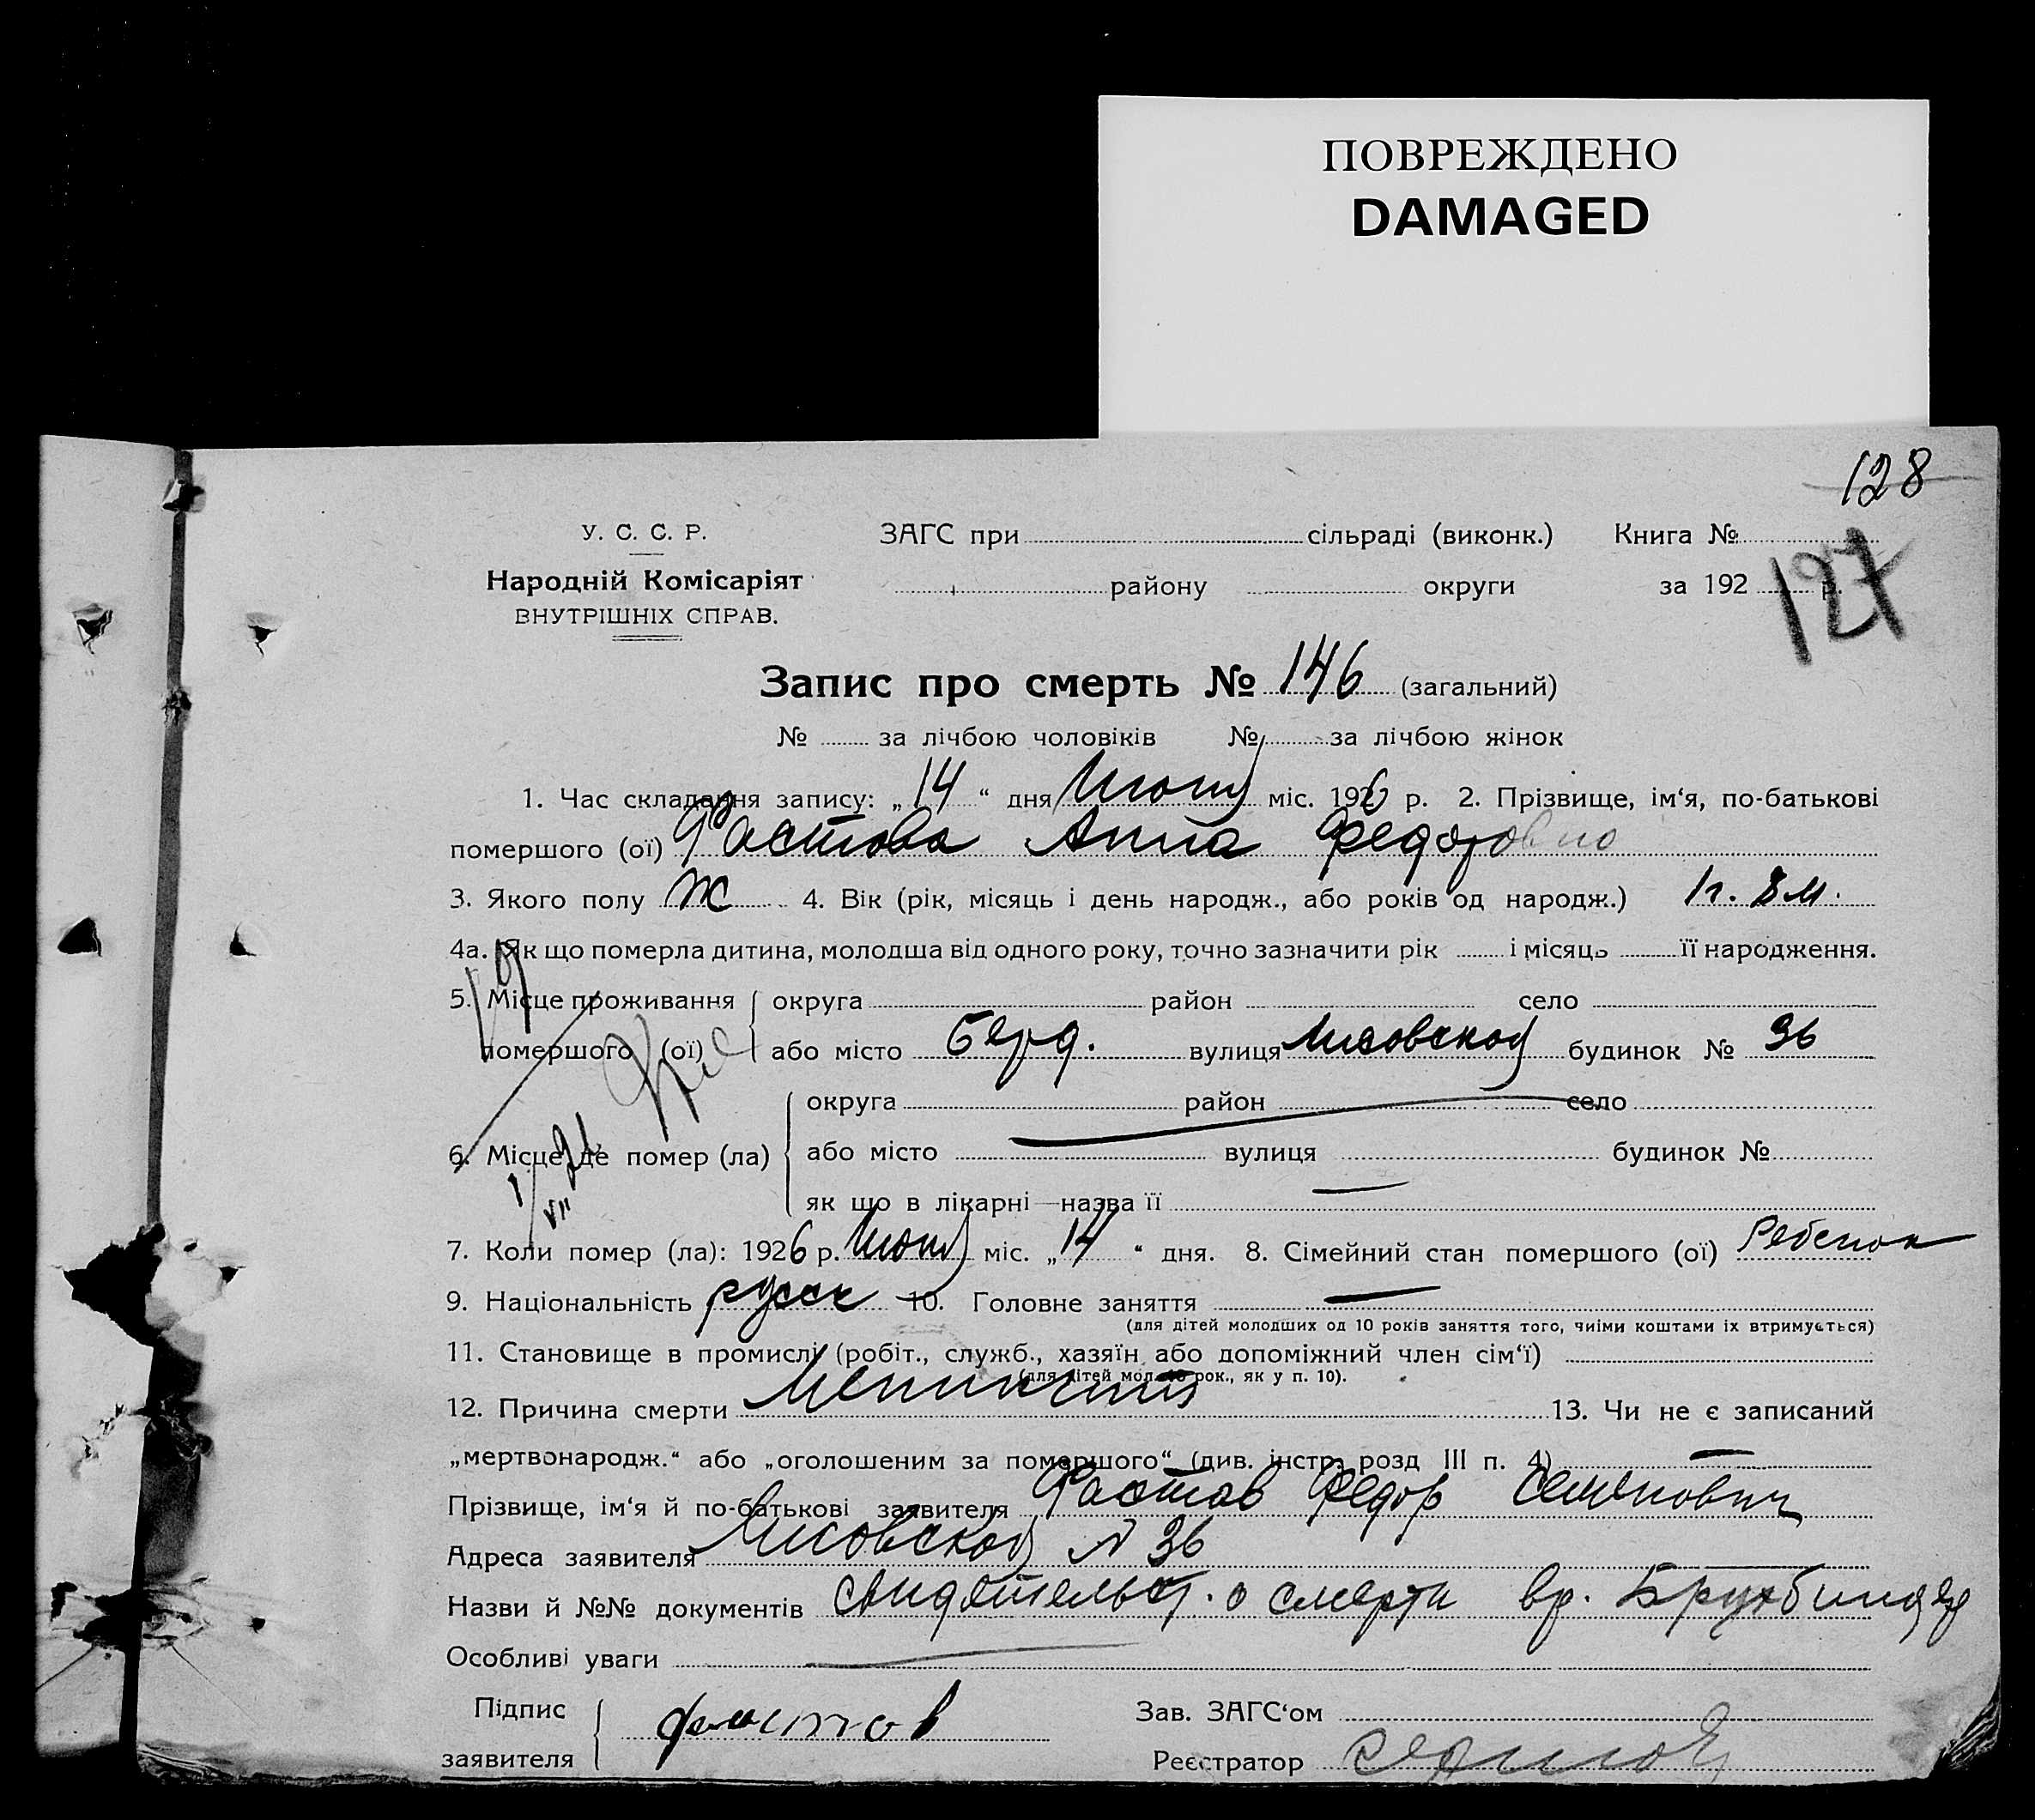 ПОВРЕЖДЕНО
DAMAGED
128
У. С. С. Р.
ЗАГС при сільраді (виконк.) Книга №
127
Народній Комісаріят
району округи за 192 р.
ВНУТРІШНІХ СПРАВ.
Запис про смерть № 146 (загальний)
№ за лічбою чоловіків № за лічбою жінок
1. Час складання запису: „14“ дня Июня міс. 1926 р. 2. Прізвище, ім‘я, по-батькові
помершого (ої) Фастова Анна Федоровна
3. Якого полу Ж 4. Вік (рік, місяць і день народж., або років од народж.) 1г. 8 м.
4а. Як що померла дитина, молодша від одного року, точно зазначити рік і місяць її народження.
5. Місце проживання округа район село
помершого (ої) або місто Берд. вулиця Лисовской будинок № 36
округа район село
6. Місце де помер (ла) або місто вулиця будинок №
як що в лікарні—назва її
7. Коли помер (ла): 1926 р. Июня міс. „14“ дня. 8. Сімейний стан помершого (ої) Ребенок
9. Національність русск 10. Головне заняття
(для дітей молодших од 10 років заняття того, чиїми коштами їх втримується)
11. Становище в промислі (робіт., служб., хазяїн або допоміжний член сім‘ї)
(для дітей мол. 10 рок., як у п. 10).
12. Причина смерти Менингит 13. Чи не є записаний
„мертвонародж.“ або „оголошеним за помершого“ (див. інстр. розд III п. 4)
Прізвище, ім‘я й по-батькові заявителя Фастов Федор Семенович
Адреса заявителя Лисовской № 36
Назви й №№ документів свидетельст. о смерти вр.
Особливі уваги
Підпис
заявителя Фастов
Зав. ЗАГС‘ом
Реєстратор